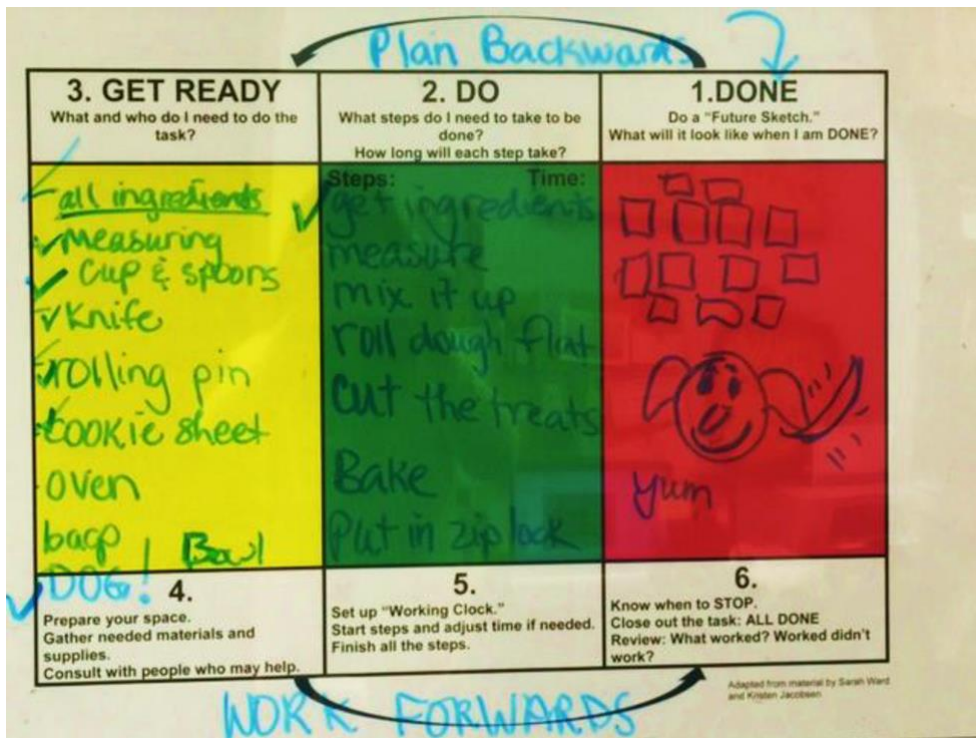 Plan Backwards
3. GET READY
What and who do I need to do the
task?
2. DO
What steps do I need to take to be
done?
How long will each step take?
1.DONE
Do a "Future Sketch."
What will it look like when I am DONE?
all ingredients
Measuring
Cup & spoons
Knife
rolling pin
cookie sheet
oven
bags
Bowl
DOG!
Steps: Time:
get ingredients
measure
mix it up
roll dough flat
cut the treats
Bake
Put in zip lock
Yum
4.
Prepare your space.
Gather needed materials and
supplies.
Consult with people who may help.
5.
Set up "Working Clock."
Start steps and adjust time if needed.
Finish all the steps.
6.
Know when to STOP.
Close out the task: ALL DONE
Review: What worked? Worked didn't
work?
Adapted from material by Sarah Ward
and Kristen Jacobsen
WORK FORWARDS